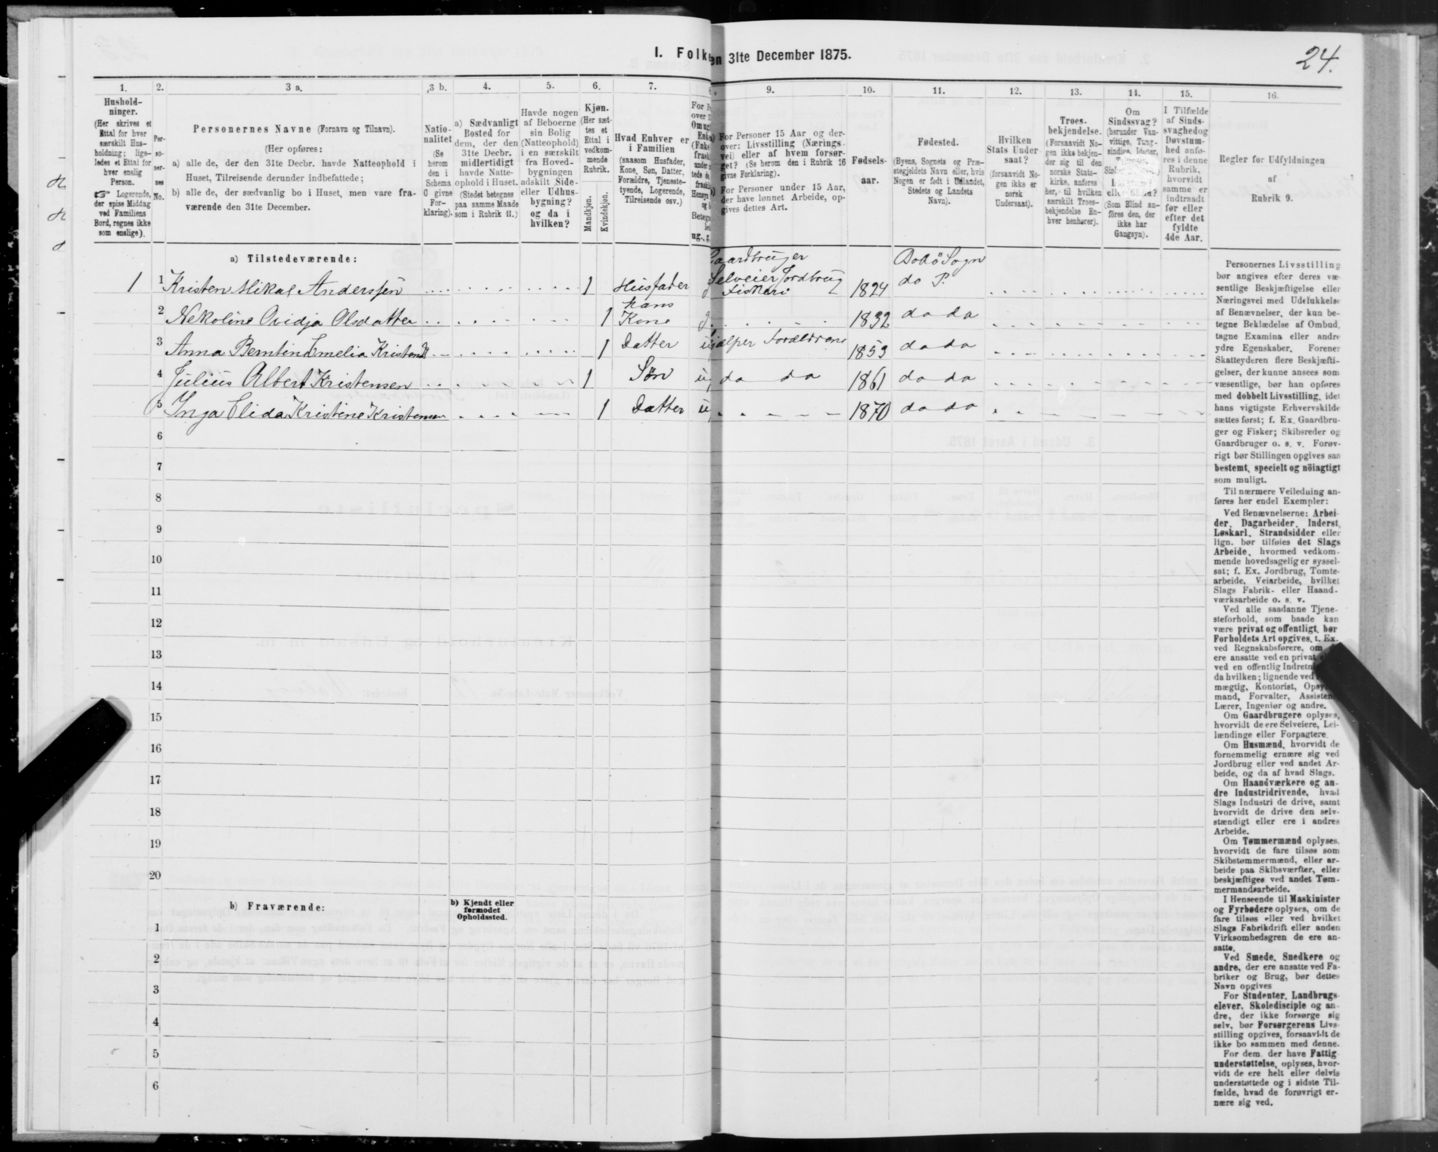 I. Folk en 31te December 1875.
24.
1. 2. 3 a. 3 b. 4. 5. 6. 7. 9. 10. 11. 12. 13. 14. 15. 16.
Hushold-
ninger.
(Her skrives et
Ettal for hver
særskilt Hus-
holdning; lige-
ledes et Ettal for
hver enslig
Person.
☞ Logerende,
der spise Middag
ved Familiens
Bord, regnes ikke
som enslige).
Per-
so-
ner-
nes
No.
Personernes Navne (Fornavn og Tilnavn).
(Her opføres:
a) alle de, der den 31te Decbr. havde Natteophold i
Huset, Tilreisende derunder indbefattede;
b) alle de, der sædvanlig bo i Huset, men vare fra-
værende den 31te December.
Natio-
nalitet
(Se
herom
den i
Schema
C givne
For-
klaring).
a) Sædvanligt
Bosted for
dem, der den
31te Decbr.
midlertidigt
havde Natte-
ophold i Huset.
(Stedet betegnes
paa samme Maade
som i Rubrik 11.)
Havde nogen
af Beboerne
sin Bolig
(Natteophold)
i en særskilt
fra Hoved-
bygningen
adskilt Side-
eller Udhus-
bygning?
og da i
hvilken?
Kjøn.
(Her sæt-
tes et
Ettal i
vedkom-
mende
Rubrik.
Mandkjøn.
Kvindekjøn.
Hvad Enhver er
i Familien
(saasom Husfader,
Kone, Søn, Datter,
Forældre, Tjeneste-
tyende, Logerende,
Tilreisende osv.)
For Personer 15 Aar og der-
over: Livsstilling (Nærings-
vei) eller af hvem forsør-
get? (Se herom den i Rubrik 16
givne Forklaring).
For Personer under 15 Aar,
der have lønnet Arbeide, op-
gives dettes Art.
Fødsels-
aar.
Fødested.
(Byens, Sognets og Præ-
stegjeldets Navn eller, hvis
Nogen er født i Udlandet,
Stedets og Landets
Navn).
Hvilken
Stats Under-
saat?
(forsaavidt No-
gen ikke er
norsk
Undersaat).
Troes-
bekjendelse.
(Forsaavidt No-
gen ikke bekjen-
der sig til den
norske Stats-
kirke, anføres
her, til hvilken
særskilt Troes-
bekjendelse En-
hver henhører).
Om
Sindssvag?
(herunder Van-
vittige, Tung-
sindige, Idioter,
(Som Blind an-
føres den, der
ikke har
Gangsyn).
I Tilfælde
af Sinds-
svaghed og
Døvstum-
hed anfø-
res i denne
Rubrik,
hvorvidt
samme er
indtraadt
før eller
efter det
fyldte
4de Aar.
Regler før Udfyldningen
af
Rubrik 9.
a) Tilstedeværende:
1 1 Kristen Mikal Anderssen 1 Husfader Gaardbruger Selveier Jordbrug Fiskeri 1824 Bodø Sogn do P.
2 Nekoline Ovidja Olsdatter 1 hans Kone g. 1832 do do
3 Anna Bentine Emelia 1 Datter u hjelper Forældrene 1853 do do
4 Julius Albert Kristensen 1 Søn u do do 1861 do do
5 Inga Elida Kristine Kristensen 1 Datter u 1870 do do
6
7
8
9
10
11
12
13
14
15
16
17
18
19
20
b) Fraværende:
b) Kjendt eller
formodet
Opholdssted.
1
2
3
4
5
6
Personernes Livsstilling
bør angives efter deres væ-
sentlige Beskjæftigelse eller
Næringsvei med Udelukkelse
af Benævnelser, der kun be-
tegne Beklædelse af Ombud,
tagne Examina eller andre
ydre Egenskaber. Forener
Skatteyderen flere Beskjæfti-
gelser, der kunne ansees som
væsentlige, bør han opføres
med dobbelt Livsstilling, idet
hans vigtigste Erhvervskilde
sættes først; f. Ex. Gaardbru-
ger og Fisker; Skibsreder og
Gaardbruger o. s. v. Forøv-
rigt bør Stillingen opgives saa
bestemt, specielt og nöiagtigt
som muligt.
Til nærmere Veiledning an-
føres her endel Exempler:
Ved Benævnelserne: Arbei-
der, Dagarbeider, Inderst,
Løskarl, Strandsidder eller
lign. bør tilføies det Slags
Arbeide, hvormed vedkom-
mende hovedsagelig er syssel-
sat; f. Ex. Jordbrug, Tomte-
arbeide, Veiarbeide, hvilket
Slags Fabrik- eller Haand-
værksarbeide o. s. v.
Ved alle saadanne Tjene-
steforhold, som baade kan
være privat og offentligt, bør
Forholdets Art opgives, t. Ex.
ved Regnskabsførere, om
ere ansatte ved en privat
ved en offentlig Indretn
da hvilken; lignende ved
mægtig, Kontorist, Opsy
mand, Forvalter, Assisten
Lærer, Ingeniør og andre.
Om Gaardbrugere oplyses,
hvorvidt de ere Selveiere, Lei-
lændinge eller Forpagtere.
Om Husmænd, hvorvidt de
fornemmelig ernære sig ved
Jordbrug eller ved andet Ar-
beide, og da af hvad Slags.
Om Haandværkere og an-
dre Industridrivende, hvad
Slags Industri de drive, samt
hvorvidt de drive den selv-
stændigt eller ere i andres
Arbeide.
Om Tømmermænd oplyses,
hvorvidt de fare tilsøs som
Skibstømmermænd, eller ar-
beide paa Skibsværfter, eller
beskjæftiges ved andet Tøm-
mermandsarbeide.
I Henseende til Maskinister
og Fyrbødere oplyses, om de
fare tilsøs eller ved hvilket
Slags Fabrikdrift eller anden
Virksomhedsgren de ere an-
satte.
Ved Smede, Snedkere og
andre, der ere ansatte ved Fa-
briker og Brug, bør dettes
Navn opgives
For Studenter, Landbrugs-
elever, Skoledisciple og an-
dre, der ikke forsørge sig
selv, bør Forsørgerens Livs-
stilling opgives, forsaavidt de
ikke bo sammen med denne.
For dem, der have Fattig-
understøttelse, oplyses, hvor-
vidt de ere helt eller delvis
understøttede og i sidste Til-
fælde, hvad de forøvrigt er-
nære sig ved.